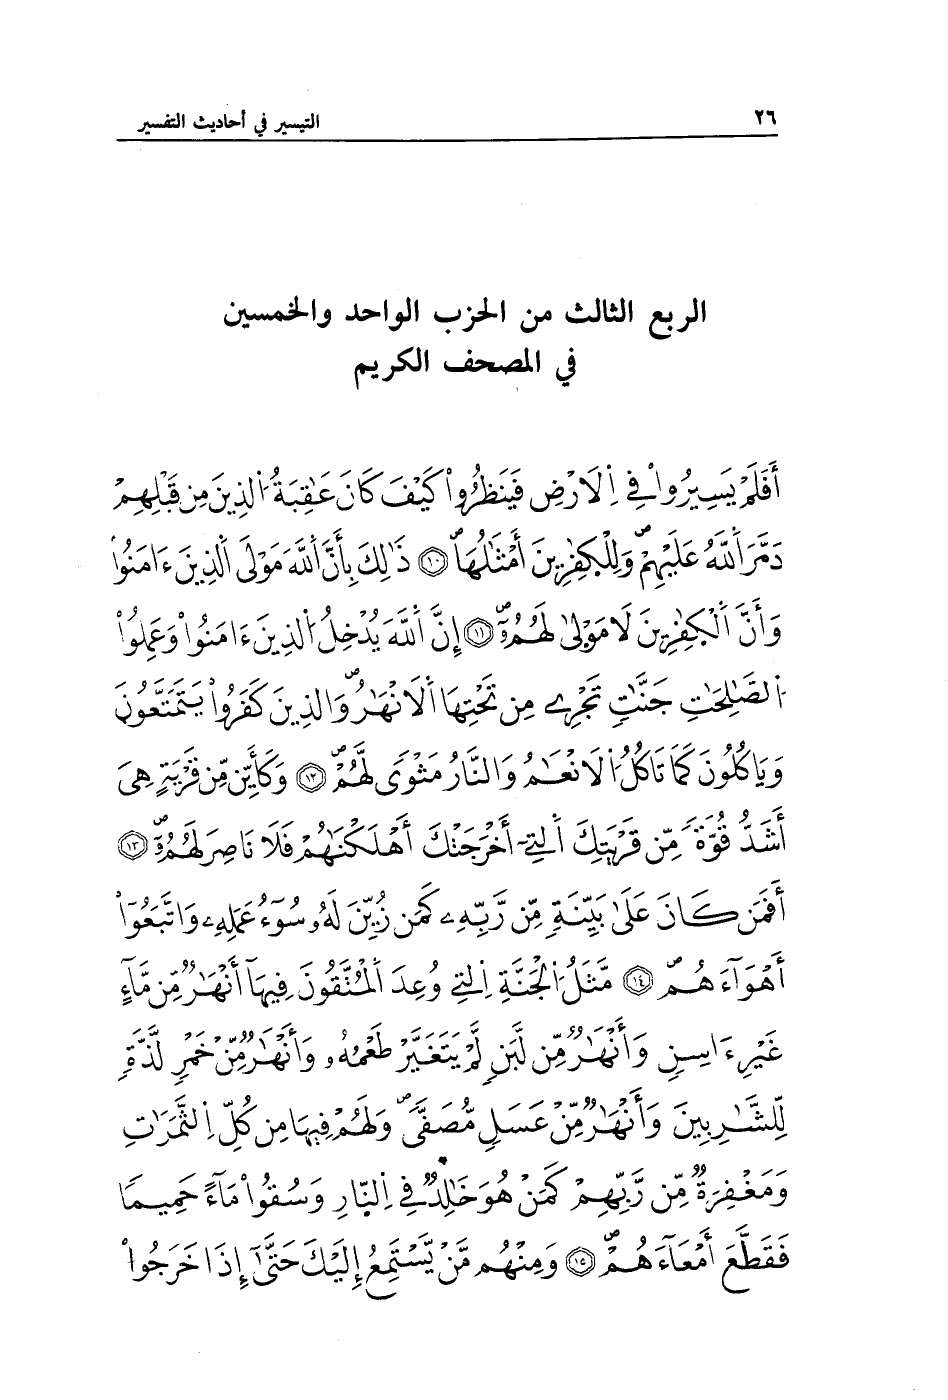 ٢٦ التيسير في أحاديث التفسير
الربع الثالث من الحزب الواحد والخمسين
في المصحف الكريم
أَفَلَمْ يَسِيرُواْ فِي اِلَارْضِ فَيَنظُرُواْ كَيْفَ كَانَ عَٰقِبَةُ اُلذِينَ مِن قَبْلِهِمْ
دَمَّرَ اَللَّهُ عَلَيْهِمْ وَلِلْكٰفِرِينَ أَمْثَٰلُهَا ١٠ ذَٰلِكَ بِأَنَّ اَللَّهَ مَوْلَى اَلذِينَ ءَامَنُواْ
وَأَنَّ اَلْكٰفِرِينَ لَا مَوْلىٰ لَهُمُ ١١ إِنَّ اَللَّهَ يُدْخِلُ اُلذِينَ ءَامَنُواْ وَعَمِلُواْ
اُلصَّٰلِحَٰتِ جَنَّٰتٍ تَجْرِے مِن تَحْتِهَا اَلَانْهَٰرُ وَالذِينَ كَفَرُواْ يَتَمَتَّعُونَ
وَيَاكُلُونَ كَمَا تَاكُلُ اُلَانْعَٰمُ وَالنَّارُ مَثْوًى لَّهُمْ ١٢ وَكَأَيِّن مِّن قَرْيَةٍ هِىَ
أَشَدُّ قُوَّةً مِّن قَرْيَتِكَ اَلتِےٓ أَخْرَجَتْكَ أَهْلَكْنَٰهُمْ فَلَا نَاصِرَ لَهُمُ ١٣
أَفَمَن كَانَ عَلَىٰ بَيِّنَةٍ مِّن رَّبِّهِۦ كَمَن زُيِّنَ لَهُۥ سُوٓءُ عَمَلِهِۦ وَاتَّبَعُوٓاْ
أَهْوَآءَهُم ١٤ مَّثَلُ اُلْجَنَّةِ اِلتِے وُعِدَ اَلْمُتَّقُونَ فِيهَآ أَنْهَٰرٌ مِّن مَّآءٍ
غَيْرِ ءَاسِنٍ وَأَنْهَٰرٌ مِّن لَّبَنٍ لَّمْ يَتَغَيَّرْ طَعْمُهُۥ وَأَنْهَٰرٌ مِّنْ خَمْرٍ لَّذَّةٍ
لِّلشَّٰرِبِينَ وَأَنْهَٰرٌ مِّنْ عَسَلٍ مُّصَفًّى وَلَهُمْ فِيهَا مِن كُلِّ اِلثَّمَرَٰتِ
وَمَغْفِرَةٌ مِّن رَّبِّهِمْ كَمَنْ هُوَ خَٰلِدٌ فِي اِلنَّارِ وَسُقُواْ مَآءً حَمِيمًا
فَقَطَّعَ أَمْعَآءَهُمْ ١٥ وَمِنْهُم مَّنْ يَّسْتَمِعُ إِلَيْكَ حَتَّىٰٓ إِذَا خَرَجُواْ